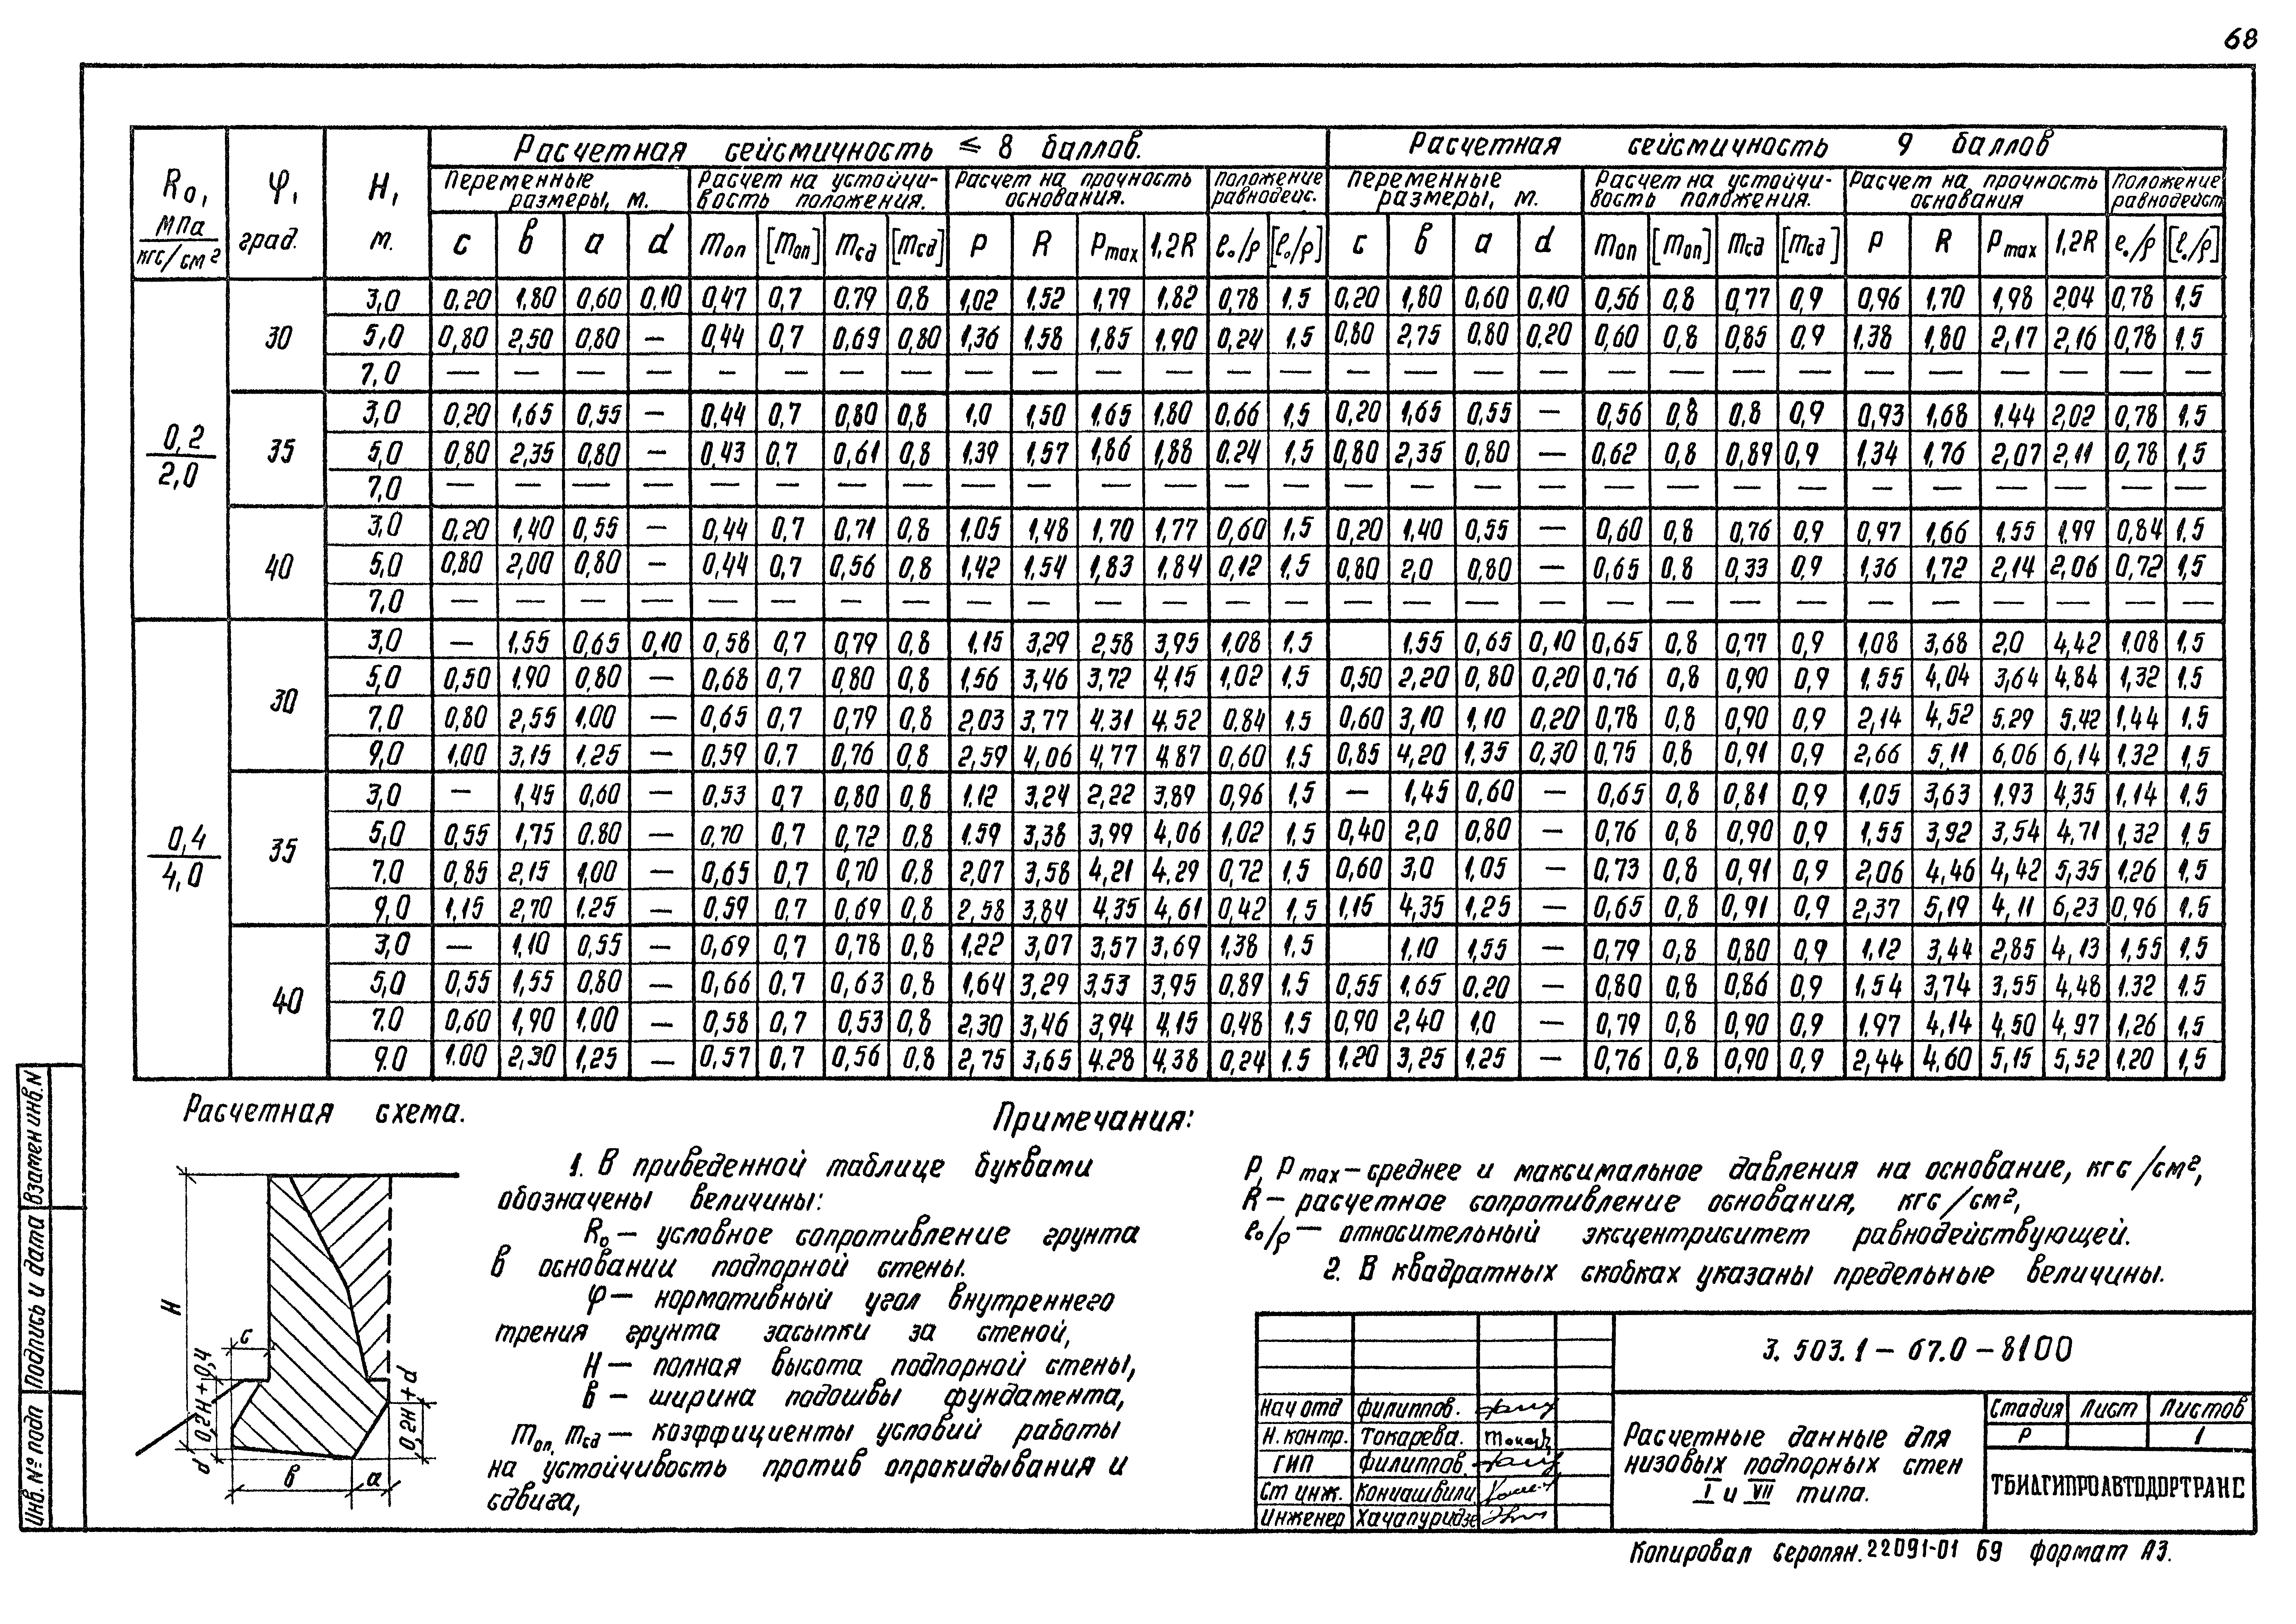 68
Расчетная сейсмичность ≤ 8 баллов. Расчетная сейсмичность 9 баллов
R₀, МПа / кгс/см² φ, град. H, м. Переменные размеры, м. Расчет на устойчивость положения. Расчет на прочность основания. Положение равнодейс. Переменные размеры, м. Расчет на устойчивость положения. Расчет на прочность основания Положение равнодейст
c в a d mоп [mоп] mсд [mсд] P R Pmax 1,2R e₀/ρ [e₀/ρ] c в a d mоп [mоп] mсд [mсд] P R Pmax 1,2R e₀/ρ [e₀/ρ]
0,2/2,0
30
3,0 0,20 1,80 0,60 0,10 0,47 0,7 0,79 0,8 1,02 1,52 1,79 1,82 0,78 1.5 0,20 1,80 0,60 0,10 0,56 0,8 0,77 0,9 0,96 1,70 1,98 2,04 0,78 1.5
5,0 0,80 2,50 0,80 — 0,44 0,7 0,69 0,80 1,36 1.58 1,85 1.90 0,24 1,5 0,80 2,75 0,80 0,20 0,60 0,8 0,85 0,9 1,38 1,80 2,17 2,16 0,78 1.5
7,0 — — — — — — — — — — — — — — — — — — — — — — — — — — — —
35
3,0 0,20 1,65 0,55 — 0,44 0,7 0,80 0,8 1,0 1,50 1.65 1,80 0,66 1,5 0,20 1,65 0,55 — 0,56 0,8 0,8 0,9 0,93 1,68 1.44 2,02 0,78 1,5
5,0 0,80 2,35 0,80 — 0,43 0,7 0,61 0,8 1,39 1,57 1,86 1,88 0.24 1,5 0,80 2,35 0,80 — 0,62 0,8 0,89 0,9 1,34 1,76 2,07 2,11 0,78 1,5
7,0 — — — — — — — — — — — — — — — — — — — — — — — — — — — —
40
3,0 0,20 1,40 0,55 — 0,44 0,7 0,71 0,8 1.05 1,48 1.70 1,77 0,60 1,5 0,20 1,40 0,55 — 0,60 0,8 0,76 0,9 0,97 1,66 1.55 1.99 0,84 1,5
5,0 0,80 2,00 0,80 — 0,44 0,7 0,56 0,8 1,42 1,54 1,83 1,84 0,12 1,5 0,80 2,0 0,80 — 0,65 0,8 0,33 0,9 1,36 1,72 2,14 2,06 0,72 1,5
7,0 — — — — — — — — — — — — — — — — — — — — — — — — — — — —
0,4/4,0
30
3,0 — 1,55 0,65 0,10 0,58 0,7 0,79 0,8 1,15 3,29 2,58 3,95 1,08 1.5 1.55 0,65 0,10 0,65 0,8 0,77 0,9 1,08 3,68 2,0 4,42 1,08 1,5
5,0 0,50 1,90 0,80 — 0,68 0,7 0,80 0,8 1,56 3,46 3,72 4,15 1,02 1.5 0,50 2,20 0,80 0,20 0,76 0,8 0,90 0,9 1.55 4,04 3,64 4,84 1,32 1.5
7,0 0,80 2,55 1,00 — 0,65 0,7 0,79 0,8 2,03 3,77 4,31 4,52 0,84 1.5 0,60 3,10 1,10 0,20 0,78 0,8 0,90 0,9 2,14 4,52 5,29 5,42 1,44 1.5
9,0 1,00 3,15 1,25 — 0,59 0,7 0,76 0,8 2,59 4,06 4,77 4,87 0,60 1,5 0,85 4,20 1,35 0,30 0,75 0,8 0,91 0,9 2,66 5,11 6,06 6,14 1,32 1,5
35
3,0 — 1,45 0,60 — 0,53 0,7 0,80 0,8 1,12 3,24 2,22 3,89 0,96 1,5 — 1,45 0,60 — 0,65 0,8 0,81 0,9 1,05 3,63 1.93 4,35 1,14 1,5
5,0 0,55 1,75 0,80 — 0,70 0,7 0,72 0,8 1.59 3,38 3,99 4,06 1,02 1,5 0,40 2,0 0,80 — 0,76 0,8 0,90 0,9 1,55 3,92 3,54 4,71 1,32 1,5
7,0 0,85 2,15 1,00 — 0,65 0,7 0,70 0,8 2,07 3,58 4,21 4,29 0,72 1,5 0,60 3,0 1.05 — 0,73 0,8 0,91 0,9 2,06 4,46 4,42 5,35 1,26 1,5
9,0 1,15 2,70 1,25 — 0,59 0,7 0,69 0,8 2,58 3,84 4,35 4,61 0,42 1,5 1,15 4,35 1,25 — 0,65 0,8 0,91 0,9 2,37 5,19 4,11 6,23 0,96 1.5
40
3,0 — 1,10 0,55 — 0,69 0,7 0,78 0,8 1,22 3,07 3,57 3,69 1,38 1.5 1,10 1,55 — 0,79 0,8 0,80 0,9 1,12 3,44 2,85 4,13 1,55 1.5
5,0 0,55 1,55 0,80 — 0,66 0,7 0,63 0,8 1,64 3,29 3,53 3,95 0,89 1.5 0,55 1.65 0.20 — 0,80 0,8 0,86 0,9 1,54 3,74 3,55 4,48 1.32 1.5
7.0 0,60 1,90 1.00 — 0,58 0,7 0,53 0,8 2,30 3,46 3,94 4,15 0,48 1,5 0,90 2,40 1,0 — 0,79 0,8 0,90 0,9 1,97 4,14 4,50 4,97 1,26 1,5
9.0 1.00 2,30 1,25 — 0,57 0,7 0,56 0,8 2,75 3,65 4.28 4,38 0,24 1.5 1,20 3,25 1.25 — 0,76 0,8 0,90 0,9 2,44 4,60 5,15 5,52 1,20 1,5
Расчетная схема.
H
c
0,2H+0,4
d
в
a
0,2H+d
Примечания:
1. В приведенной таблице буквами
обозначены величины:
R₀ — условное сопротивление грунта
в основании подпорной стены.
φ — нормативный угол внутреннего
трения грунта засыпки за стеной,
H — полная высота подпорной стены,
в — ширина подошвы фундамента,
mоп, mсд — коэффициенты условий работы
на устойчивость против опрокидывания и
сдвига,
P, Pmax — среднее и максимальное давления на основание, кгс/см²,
R — расчетное сопротивление основания, кгс/см²,
e₀/ρ — относительный эксцентриситет равнодействующей.
2. В квадратных скобках указаны предельные величины.
3.503.1-67.0-8100
Нач отд Филиппов.
Н. контр. Токарева.
ГИП Филиппов.
Ст инж. Кончашвили
Инженер Хачапуридзе
Расчетные данные для
низовых подпорных стен
I и VII типа.
Стадия Лист Листов
Р 1
ТБИЛГИПРОАВТОДОРТРАНС
Инв. № подп Подпись и дата Взамен инв.N
Копировал Серопян. 22091-01 69 формат А3.